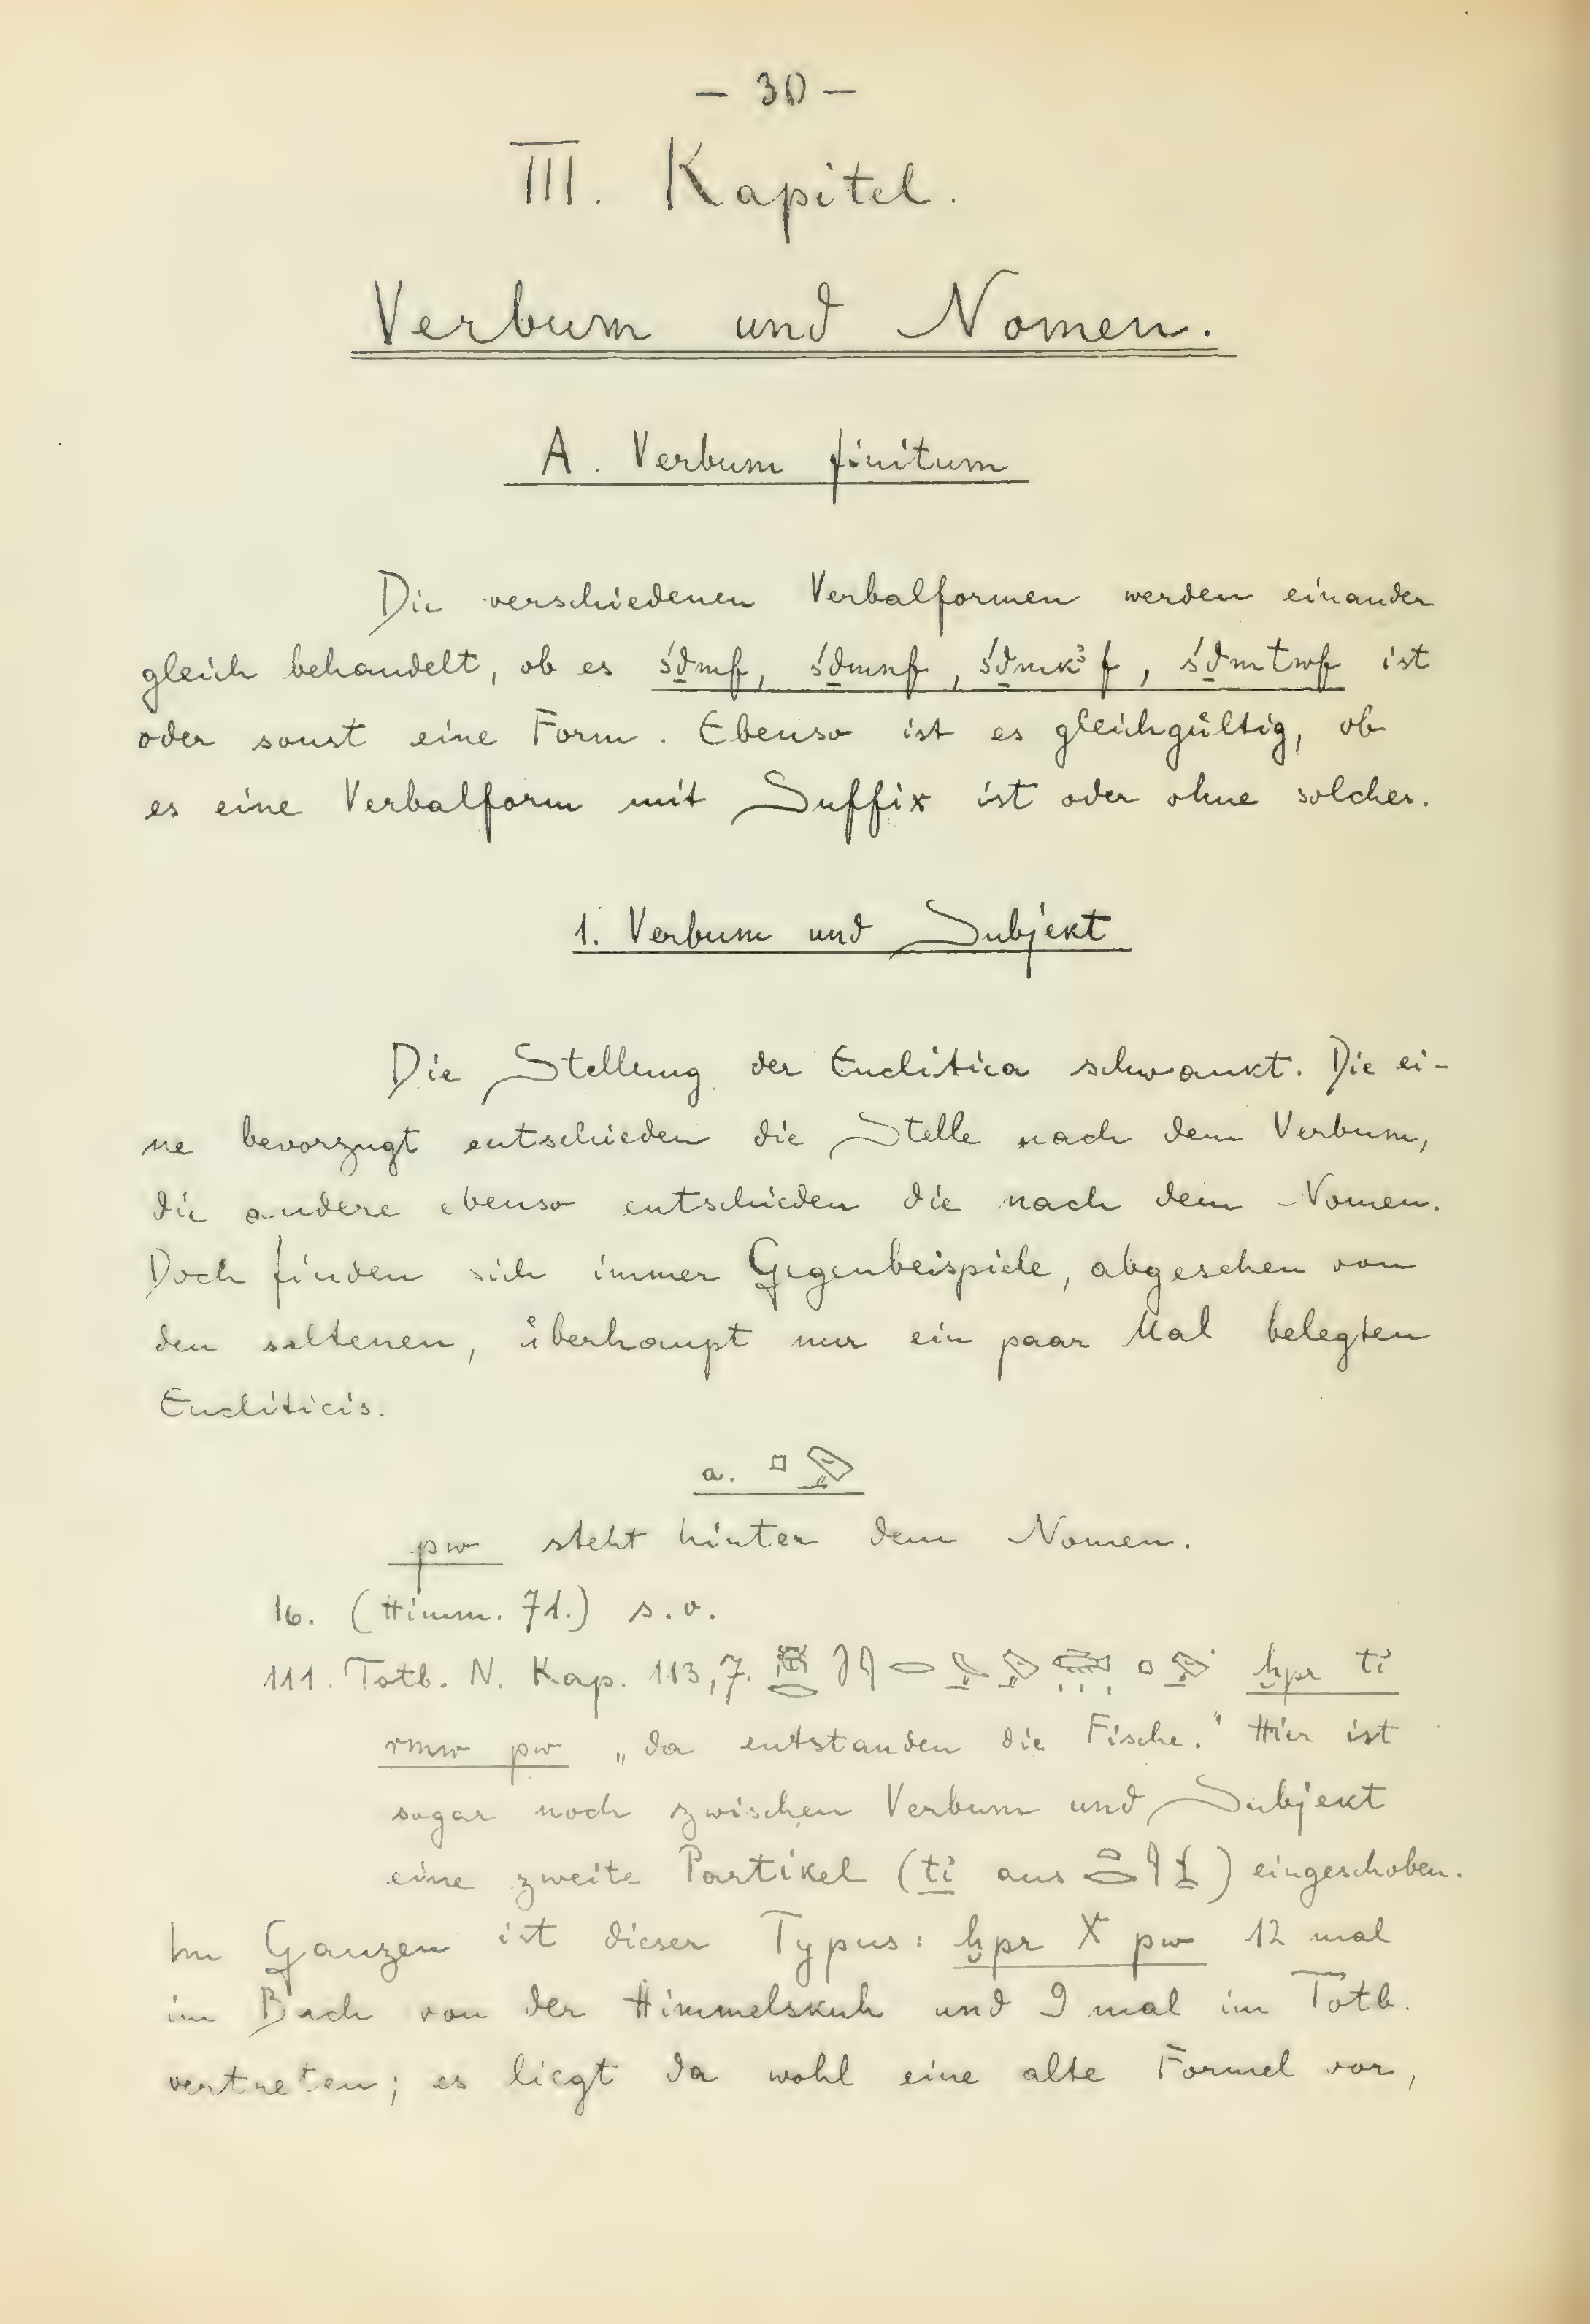 — 30 —
III. Kapitel.
Verbum und Nomen.
A. Verbum finitum
Die verschiedenen Verbalformen werden einander
gleich behandelt, ob es śḏmf, śḏmnf, śḏmkꜣf, śḏmtwf ist
oder sonst eine Form. Ebenso ist es gleichgültig, ob
es eine Verbalform mit Suffix ist oder ohne solches.
1. Verbum und Subjekt
Die Stellung der Enclitica schwankt. Die ei-
ne bevorzugt entschieden die Stelle nach dem Verbum,
die andere ebenso entschieden die nach dem Nomen.
Doch finden sich immer Gegenbeispiele, abgesehen von
den seltenen, überhaupt nur ein paar Mal belegten
Encliticis.
a.
pw steht hinter dem Nomen.
16. (Himm. 71.) s.o.
111. Totb. N. Kap. 113,7. ḫpr ti
rmw pw „da entstanden die Fische." Hier ist
sogar noch zwischen Verbum und Subjekt
eine zweite Partikel (ti aus ) eingeschoben.
Im Ganzen ist dieser Typus: ḫpr X pw 12 mal
im Buch von der Himmelskuh und 9 mal im Totb.
vertreten; es liegt da wohl eine alte Formel vor,